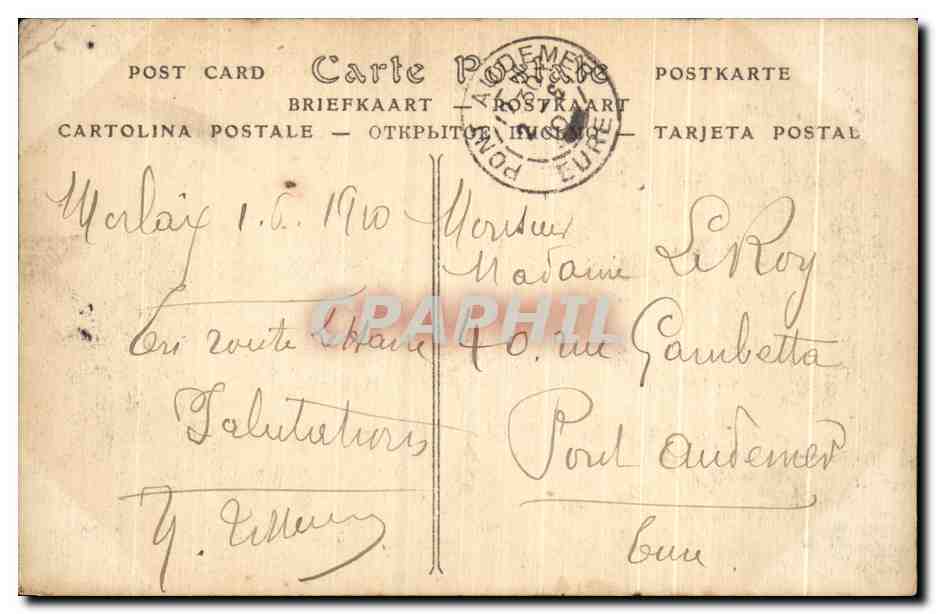 Carte Postale
POST CARD POSTKARTE
BRIEFKAART — POSTKAART
CARTOLINA POSTALE — ОТКРЫТОЕ ПИСЬМО — TARJETA POSTAL
PONT AUDEMER
EURE
Morlaix 1.6.1910
En route
Salutations
Monsieur
Madame Le Roy
40. rue Gambetta
Pont Audemer
Eure
CPAPHIL